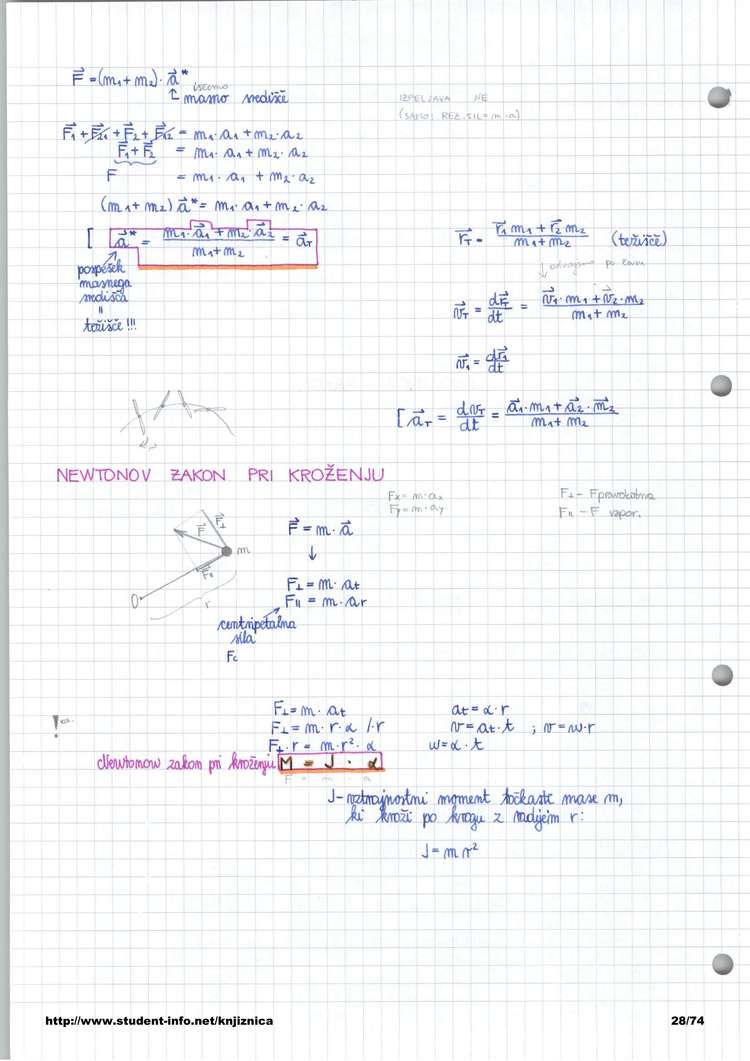 F⃗ = (m₁ + m₂) · a⃗*
iščemo
↑ masno središče
IZPELJAVA NE
(SAMO: REZ. SIL = m · a)
F⃗₁ + F⃗₂₁ + F⃗₂ + F⃗₁₂ = m₁ · a₁ + m₂ · a₂
F⃗₁ + F⃗₂ = m₁ · a₁ + m₂ · a₂
F = m₁ · a₁ + m₂ · a₂
(m₁ + m₂) a⃗* = m₁ · a₁ + m₂ · a₂
[ a⃗* = (m₁ · a⃗₁ + m₂ · a⃗₂) / (m₁ + m₂) = a⃗ᴛ
pospešek
masnega
središča
=
težišče !!!
r⃗ᴛ = (r⃗₁ m₁ + r⃗₂ m₂) / (m₁ + m₂) (težišče)
↓ odvajamo po času
v⃗ᴛ = dr⃗ᴛ / dt = (v⃗₁ · m₁ + v⃗₂ · m₂) / (m₁ + m₂)
v⃗₁ = dr⃗₁ / dt
[ a⃗ᴛ = dvᴛ / dt = (a⃗₁ · m₁ + a⃗₂ · m⃗₂) / (m₁ + m₂)
NEWTONOV ZAKON PRI KROŽENJU
Fx = m · ax
Fy = m · ay
F⊥ – Fpravokotna
F∥ – F vzpor.
F⃗
F⃗⊥
m
F∥
O
r
F⃗ = m · a⃗
↓
F⊥ = m · at
F∥ = m · ar
centripetalna
sila
Fc
F⊥ = m · at
F⊥ = m · r · α / · r
F⊥ · r = m · r² · α
at = α · r
v = at · t ; v = ω · r
ω = α · t
!
Newtonov zakon pri kroženju M = J · α
F = m a
J – vztrajnostni moment točkaste mase m,
ki kroži po krogu z radijem r:
J = m r²
http://www.student-info.net/knjiznica
28/74